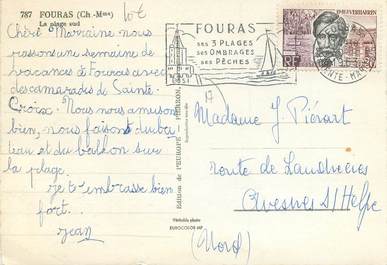 787 FOURAS (Ch.-Mme)
La plage sud
10€
Chère Marraine nous
passons une semaine de
vacances à Fouras avec
des camarades de Sainte-
Croix. Nous nous amusons
bien, nous faisons du ba
teau et du ballon sur
la plage.
je t'embrasse bien
fort.
jean
Edition de l'EUROPE PIERRON,
Véritable photo
EUROCOLOR MP
FOURAS
SES 3 PLAGES
SES OMBRAGES
SES PÊCHES
RF
Madame J Piérart
route de Landrecies
Avesnes S/Helpe
(Nord)